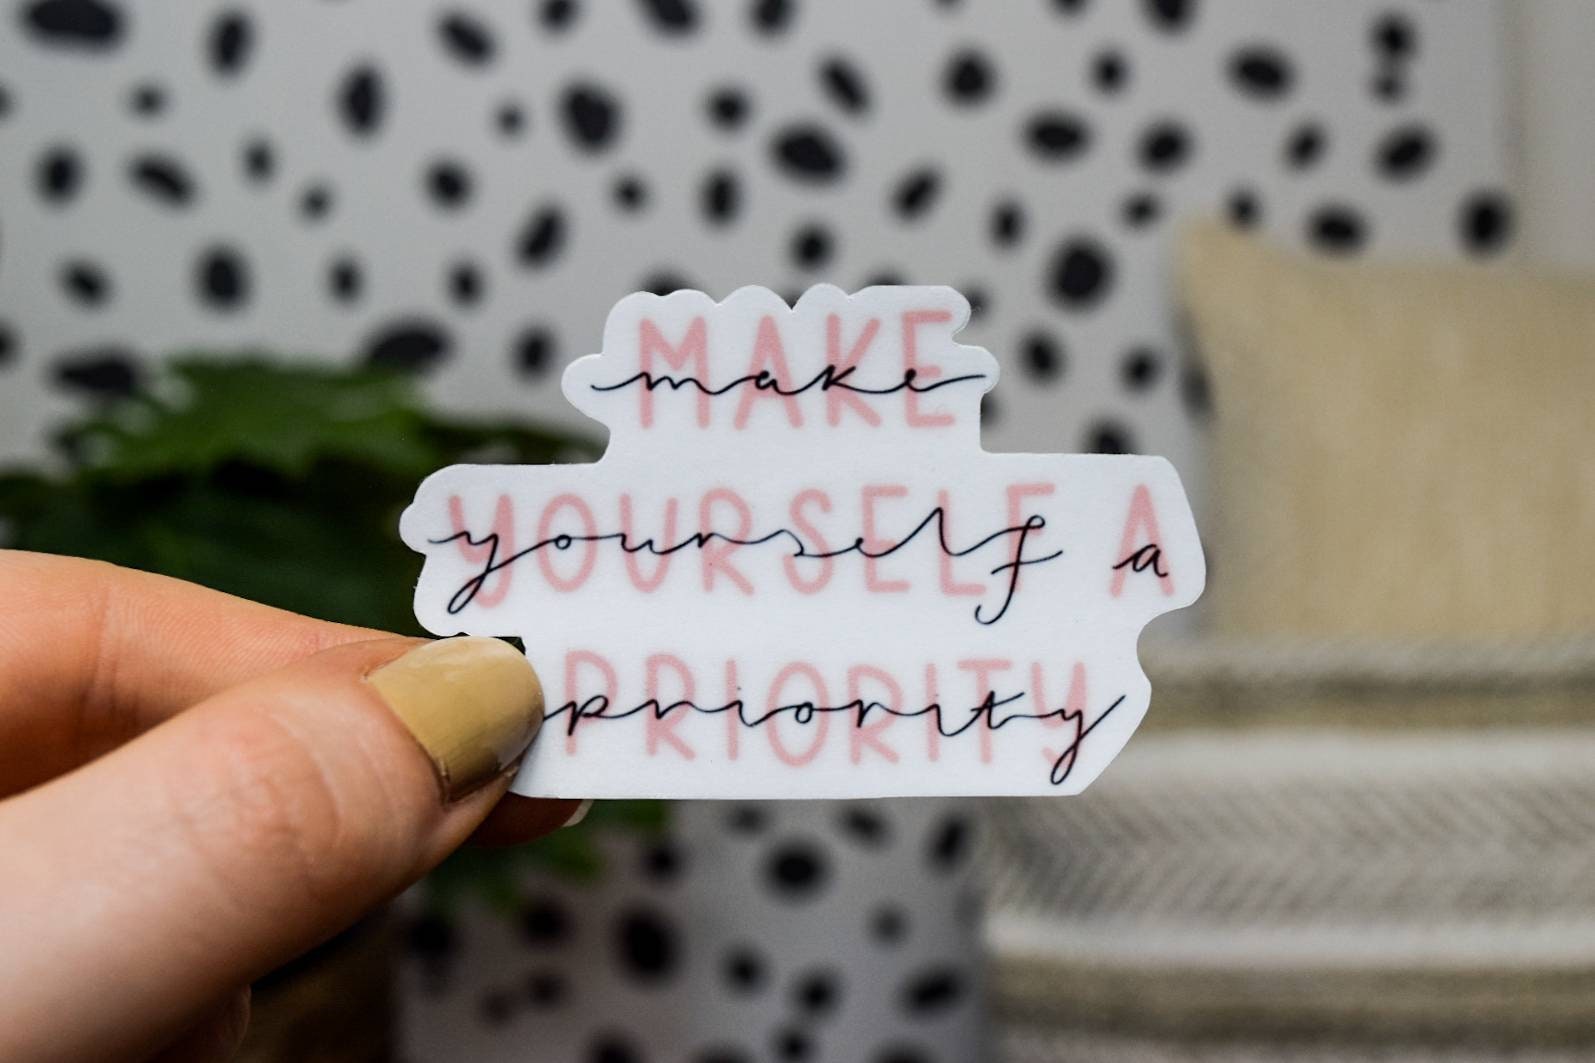 MAKE
make
YOURSELF A
yourself a
PRIORITY
priority